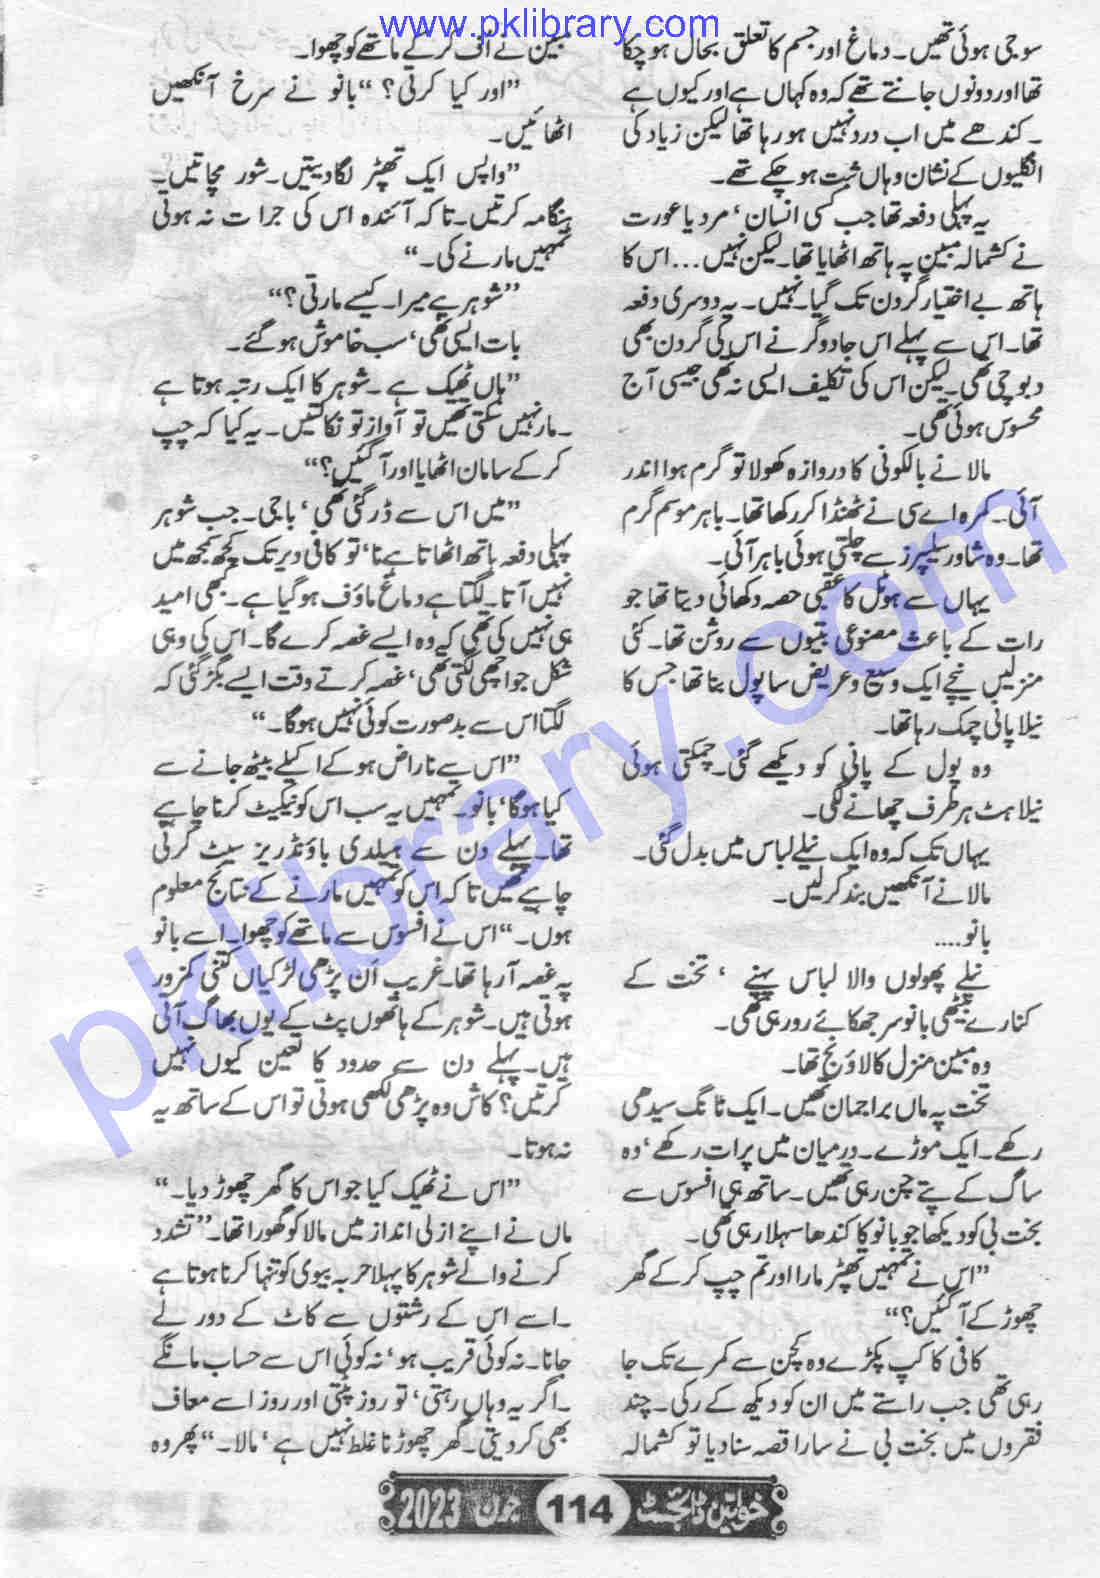 www.pklibrary.com
سوجی ہوئی تھیں۔ دماغ اور جسم کا تعلق بحال ہو چکا
تھا اور دونوں جانتے تھے کہ وہ کہاں ہے اور کیوں ہے
۔ کندھے میں اب درد نہیں ہو رہا تھا لیکن زیاد کی
انگلیوں کے نشان وہاں ثبت ہو چکے تھے۔
یہ پہلی دفعہ تھا جب کسی انسان، مرد یا عورت
نے کشمالہ مبین پہ ہاتھ اٹھایا تھا۔ لیکن نہیں... اس کا
ہاتھ بے اختیار گردن تک گیا۔ نہیں۔ یہ دوسری دفعہ
تھا۔ اس سے پہلے اس جادوگر نے اس کی گردن بھی
دبوچی تھی۔ لیکن اس کی تکلیف ایسی نہ تھی جیسی آج
محسوس ہوئی تھی۔
مالا نے بالکونی کا دروازہ کھولا تو گرم ہوا اندر
آئی۔ کمرہ اے سی نے ٹھنڈا کر رکھا تھا۔ باہر موسم گرم
تھا۔ وہ شاور سلیپرز سے چلتی ہوئی باہر آئی۔
یہاں سے ہوٹل کا عقبی حصہ دکھائی دیتا تھا جو
رات کے باعث مصنوعی بتیوں سے روشن تھا۔ کئی
منزلیں نیچے ایک وسیع و عریض سا پول بنا تھا جس کا
نیلا پانی چمک رہا تھا۔
وہ پول کے پانی کو دیکھے گئی۔ چمکتی ہوئی
نیلاہٹ ہر طرف چھانے لگی۔
یہاں تک کہ وہ ایک نیلے لباس میں بدل گئی۔
مالا نے آنکھیں بند کر لیں۔
بانو....
نیلے پھولوں والا لباس پہنے، تخت کے
کنارے بیٹھی بانو سر جھکائے رو رہی تھی۔
وہ مبین منزل کا لاؤنج تھا۔
تخت پہ ماں براجمان تھیں۔ ایک ٹانگ سیدھی
رکھے۔ ایک موڑے۔ درمیان میں پرات رکھے، وہ
ساگ کے پتے چن رہی تھیں۔ ساتھ ہی افسوس سے
بخت بی کو دیکھا جو بانو کا کندھا سہلا رہی تھی۔
”اس نے تمہیں تھپڑ مارا اور تم چپ کر کے گھر
چھوڑ کے آ گئیں؟“
کافی کا کپ پکڑے وہ کچن سے کمرے تک جا
رہی تھی جب راستے میں ان کو دیکھ کے رکی۔ چند
فقروں میں بخت بی نے سارا قصہ سنا دیا تو کشمالہ
مبین نے اُف کر کے ماتھے کو چھوا۔
”اور کیا کرتی؟“ بانو نے سرخ آنکھیں
اٹھائیں۔
”واپس ایک تھپڑ لگا دیتیں۔ شور مچاتیں۔
ہنگامہ کرتیں۔ تاکہ آئندہ اس کی جرات نہ ہوتی
تمہیں مارنے کی۔“
”شوہر ہے میرا۔ کیسے مارتی؟“
بات ایسی تھی، سب خاموش ہو گئے۔
”ہاں ٹھیک ہے۔ شوہر کا ایک رتبہ ہوتا ہے
۔ مار نہیں سکتی تھیں تو آواز تو نکالتیں۔ یہ کیا کہ چپ
کر کے سامان اٹھایا اور آ گئیں؟“
”میں اس سے ڈر گئی تھی، باجی۔ جب شوہر
پہلی دفعہ ہاتھ اٹھاتا ہے نا، تو کافی دیر تک کچھ سمجھ میں
نہیں آتا۔ لگتا ہے دماغ ماؤف ہو گیا ہے۔ کبھی امید
ہی نہیں کی تھی کہ وہ ایسے غصہ کرے گا۔ اس کی وہی
شکل جو اچھی لگتی تھی، غصہ کرتے وقت ایسے بگڑ گئی کہ
لگتا اس سے بدصورت کوئی نہیں ہوگا۔“
”اس سے ناراض ہو کے اکیلے بیٹھ جانے سے
کیا ہوگا، بانو۔ تمہیں یہ سب اس کو نیگیٹ کرنا چاہیے
تھا۔ پہلے دن سے ہیلدی باؤنڈریز سیٹ کرنی
چاہیے تھیں تاکہ اس کو تمہیں مارنے کے نتائج معلوم
ہوں۔“ اس نے افسوس سے ماتھے کو چھوا۔ اسے بانو
پہ غصہ آ رہا تھا۔ غریب اَن پڑھی لڑکیاں کتنی کمزور
ہوتی ہیں۔ شوہر کے ہاتھوں پٹ کے یوں بھاگ آتی
ہیں۔ پہلے دن سے حدود کا تعین کیوں نہیں
کرتیں؟ کاش وہ پڑھی لکھی ہوتی تو اس کے ساتھ یہ
نہ ہوتا۔
”اس نے ٹھیک کیا جو اس کا گھر چھوڑ دیا۔“
ماں نے اپنے ازلی انداز میں مالا کو گھورا تھا۔ ”تشدد
کرنے والے شوہر کا پہلا حربہ بیوی کو تنہا کرنا ہوتا ہے
۔ اسے اس کے رشتوں سے کاٹ کے دور لے
جانا۔ نہ کوئی قریب ہو، نہ کوئی اس سے حساب مانگے
۔ اگر یہ وہاں رہتی، تو روز پٹتی اور روز اسے معاف
بھی کر دیتی۔ گھر چھوڑنا غلط نہیں ہے، مالا۔“ پھر وہ
خواتین ڈائجسٹ 114 جون 2023
pklibrary.com